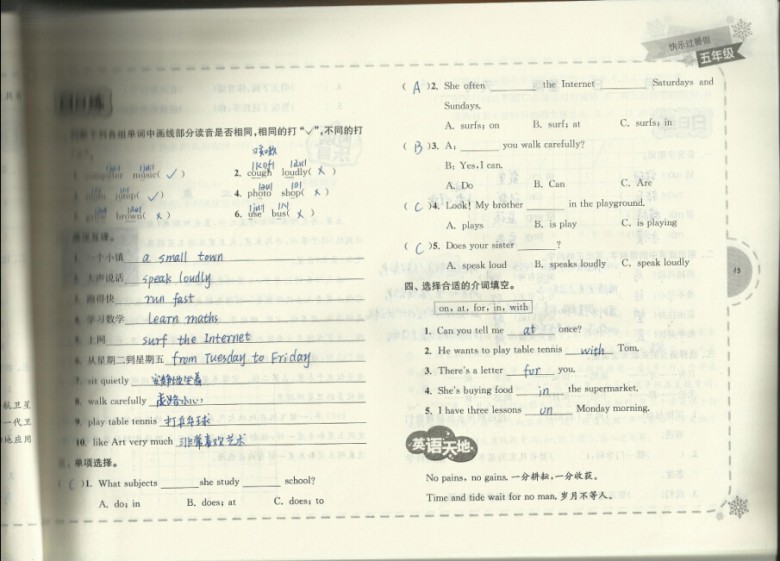 快乐过暑假
五年级
日日练
判断下列各组单词中画线部分读音是否相同,相同的打“√”,不同的打
1. computer music( √ )
咳嗽
2. cough loudly( × )
jump( √ )
4. photo shop( × )
brown( × )
6. use bus( × )
1. 一个小镇 a small town
2. 大声说话 speak loudly
3. 跑得快 run fast
4. 学习数学 learn maths
5. 上网 surf the Internet
6. 从星期二到星期五 from Tuesday to Friday
7. sit quietly 安静地坐着
8. walk carefully 走路小心
9. play table tennis 打乒乓球
10. like Art very much 非常喜欢艺术
三、单项选择。
( C )1. What subjects ______ she study ______ school?
A. do; in B. does; at C. does; to
( A )2. She often ______ the Internet ______ Saturdays and
Sundays.
A. surfs; on B. surf; at C. surfs; in
( B )3. A: ______ you walk carefully?
B: Yes, I can.
A. Do B. Can C. Are
( C )4. Look! My brother ______ in the playground.
A. plays B. is play C. is playing
( C )5. Does your sister ______?
A. speak loud B. speaks loudly C. speak loudly
四、选择合适的介词填空。
on, at, for, in, with
1. Can you tell me at once?
2. He wants to play table tennis with Tom.
3. There's a letter for you.
4. She's buying food in the supermarket.
5. I have three lessons on Monday morning.
英语天地
No pains, no gains. 一分耕耘,一分收获。
Time and tide wait for no man. 岁月不等人。
航卫星
一代卫
地应用